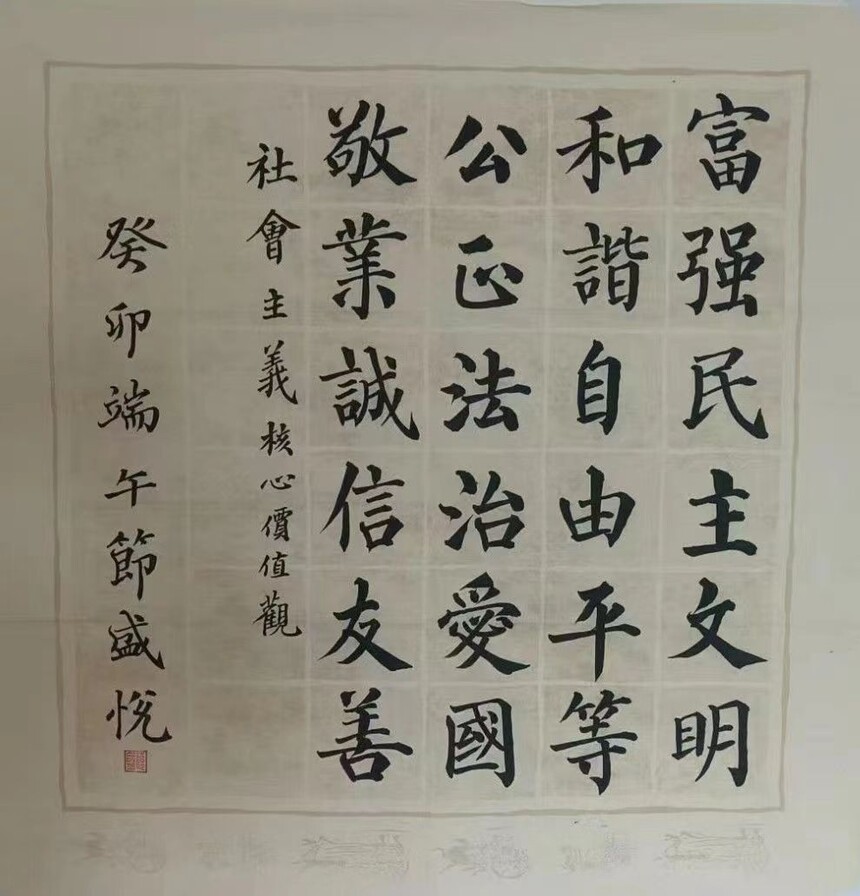 富强民主文明
和諧自由平等
公正法治愛國
敬業誠信友善
社會主義核心價值觀
癸卯端午節盛悅